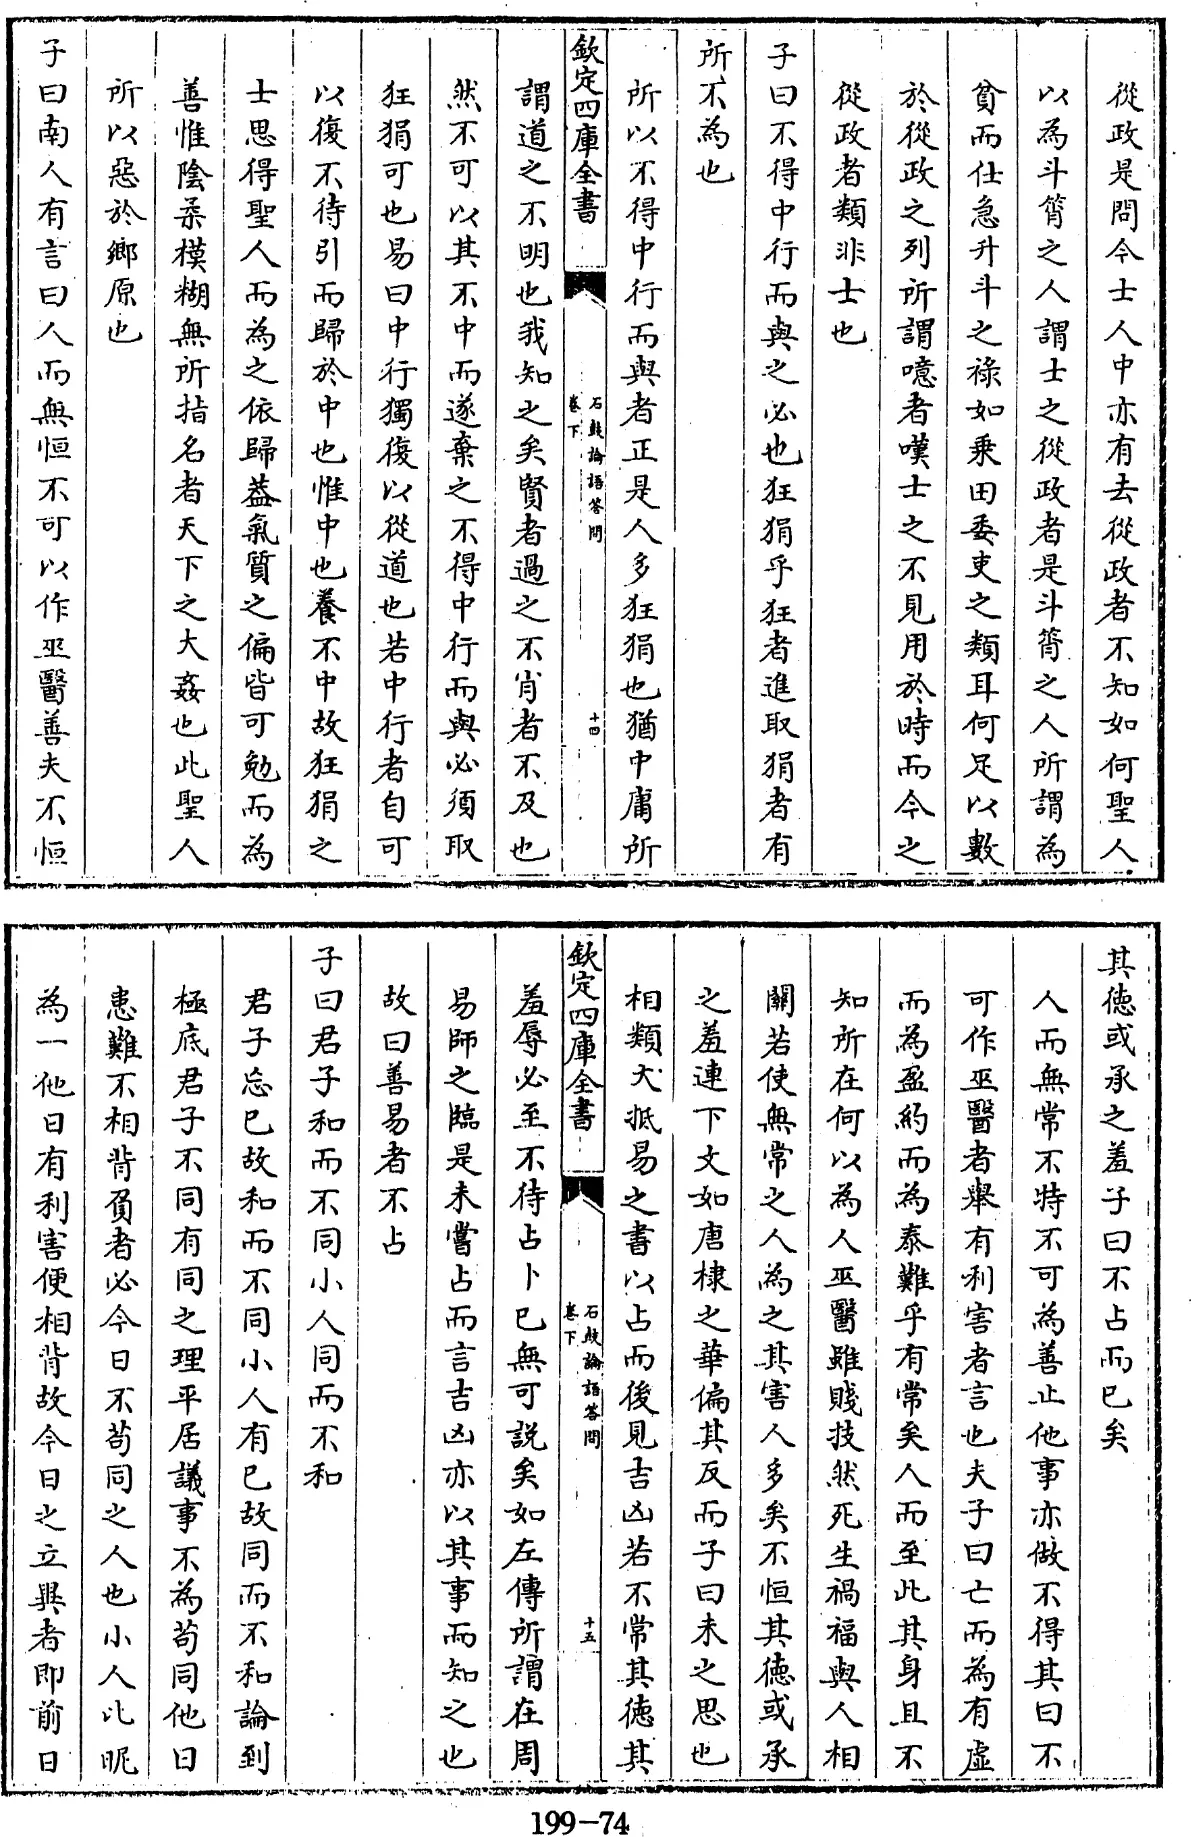 從政是問今士人中亦有去從政者不知如何聖人
以為斗筲之人謂士之從政者是斗筲之人所謂為
貧而仕急升斗之祿如乗田委吏之類耳何足以數
於從政之列所謂噫者嘆士之不見用於時而今之
從政者類非士也
子曰不得中行而與之必也狂狷乎狂者進取狷者有
所不為也
所以不得中行而與者正是人多狂狷也猶中庸所
欽定四庫全書
石鼓論語答問
卷下
十四
謂道之不明也我知之矣賢者過之不肖者不及也
然不可以其不中而遂棄之不得中行而與必須取
狂狷可也易曰中行獨復以從道也若中行者自可
以復不待引而歸於中也惟中也養不中故狂狷之
士思得聖人而為之依歸葢氣質之偏皆可勉而為
善惟陰柔模糊無所指名者天下之大姦也此聖人
所以惡於鄉原也
子曰南人有言曰人而無恒不可以作巫醫善夫不恒
其德或承之羞子曰不占而已矣
人而無常不特不可為善止他事亦做不得其曰不
可作巫醫者舉有利害者言也夫子曰亡而為有虛
而為盈約而為泰難乎有常矣人而至此其身且不
知所在何以為人巫醫雖賤技然死生禍福與人相
關若使無常之人為之其害人多矣不恒其德或承
之羞連下文如唐棣之華偏其反而子曰未之思也
相類大抵易之書以占而後見吉凶若不常其德其
欽定四庫全書
石鼓論語答問
卷下
十五
羞辱必至不待占卜已無可説矣如左傳所謂在周
易師之臨是未嘗占而言吉凶亦以其事而知之也
故曰善易者不占
子曰君子和而不同小人同而不和
君子忘已故和而不同小人有已故同而不和論到
極底君子不同有同之理平居議事不為苟同他日
患難不相背負者必今日不苟同之人也小人比昵
為一他日有利害便相背故今日之立異者即前日
199-74